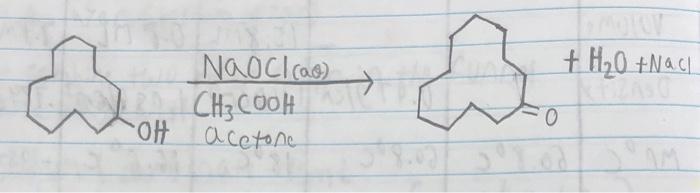 NaOCl(aq)
CH3COOH
acetone
OH
O
+ H2O + NaCl